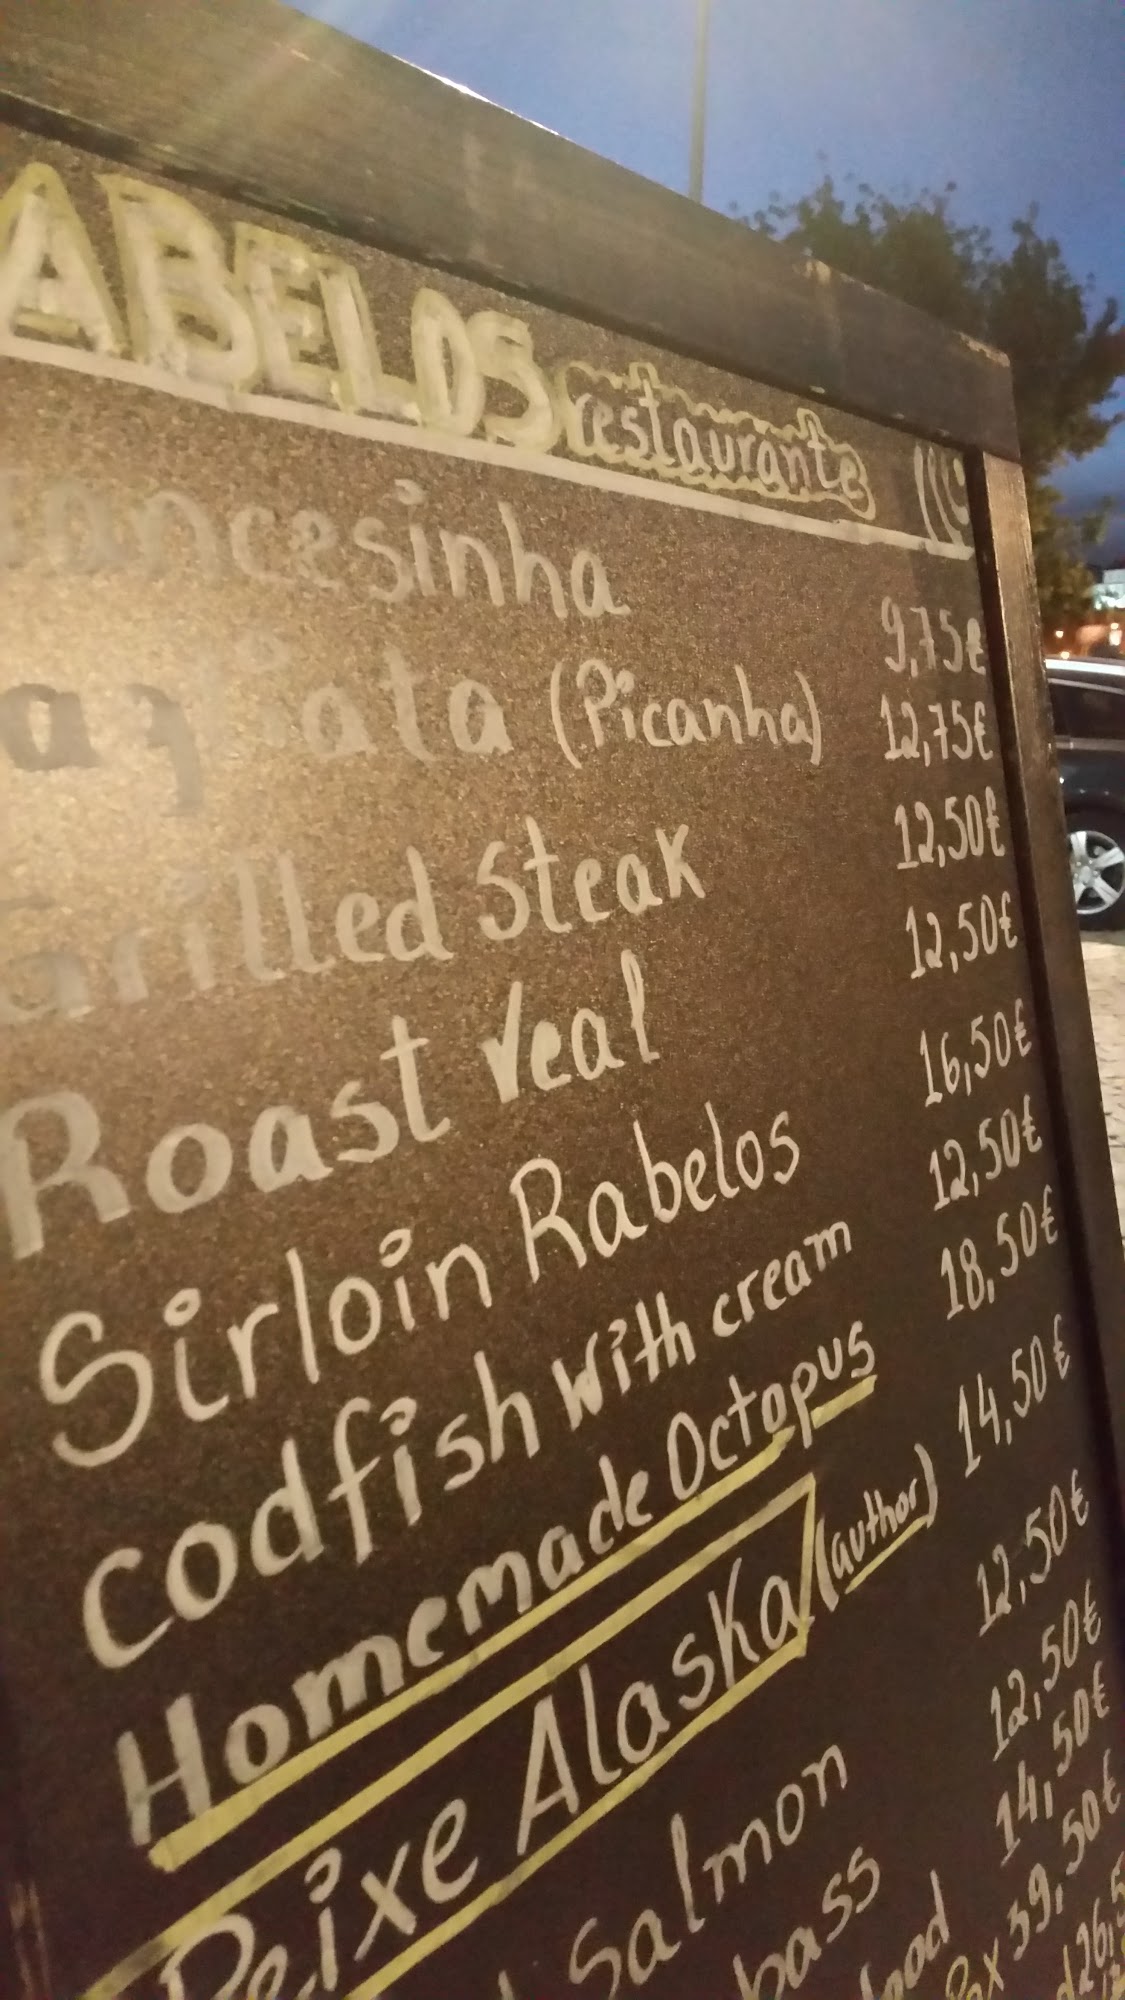 ABELOS restaurante
rancesinha 9,75€
(Picanha) 12,75€
Grilled Steak 12,50€
Roast Veal 12,50€
Sirloin Rabelos 16,50€
codfish with cream 12,50€
Homemade Octopus 18,50€
Peixe Alaska (author) 14,50€
Salmon 12,50€
bass 12,50€
14,50€
39,50€